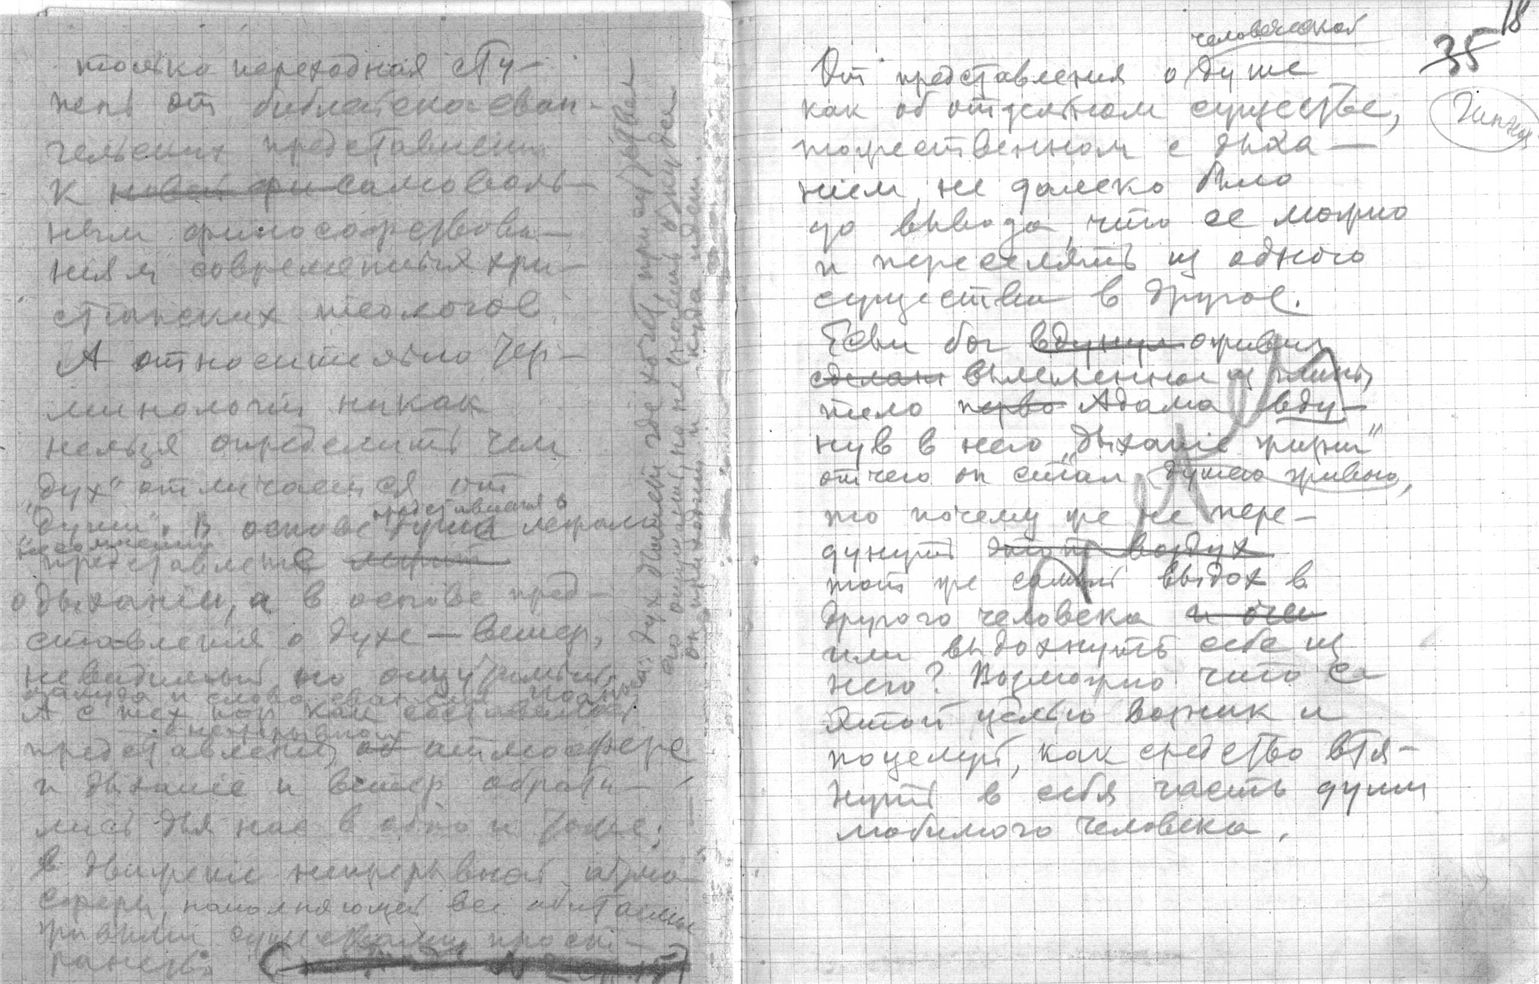 только переходная сту-
пень от библейско-еван-
гельских представлений
к новой фи самоволь-
ным философствова-
ниям современных хри-
стианских теологов.
А относительно тер-
минологии никак
нельзя определить чем
"дух" отличается от
"души". В основе представления о
душе легло
несомненно
представление
о дыхании, а в основе пред-
ставления о духе — ветер,
невидимый но ощутимый,
откуда и слова евангелия Иоанна:
дух дышит где хочет, и
его но не знаешь откуда
он приходит и куда идет.
А с тех пор как составилось
представление о непрерывной атмосфере
и дыхание и ветер обрати-
лись для нас в одно и тоже,
в движение непрерывной атмо-
сферы, наполняющей все обитаемые
живыми существами прост-
ранство.
18
35
От представления о человеческой душе
как об отдельном существе,
тожественном с дыха-
нием, не далеко было
до вывода, что ее можно
и переселять из одного
существа в другое.
Если бог вдунул оживил
сделал вылепленное из глины
тело перво Адама вду-
нув в него "дыхание жизни"
отчего он стал душею живою,
то почему же не пере-
дунуть этот воздух
тот же самый выдох в
другого человека
или выдохнуть себе из
него? Возможно что с
этой целью возник и
поцелуй, как средство втя-
нуть в себя часть души
любимого человека.